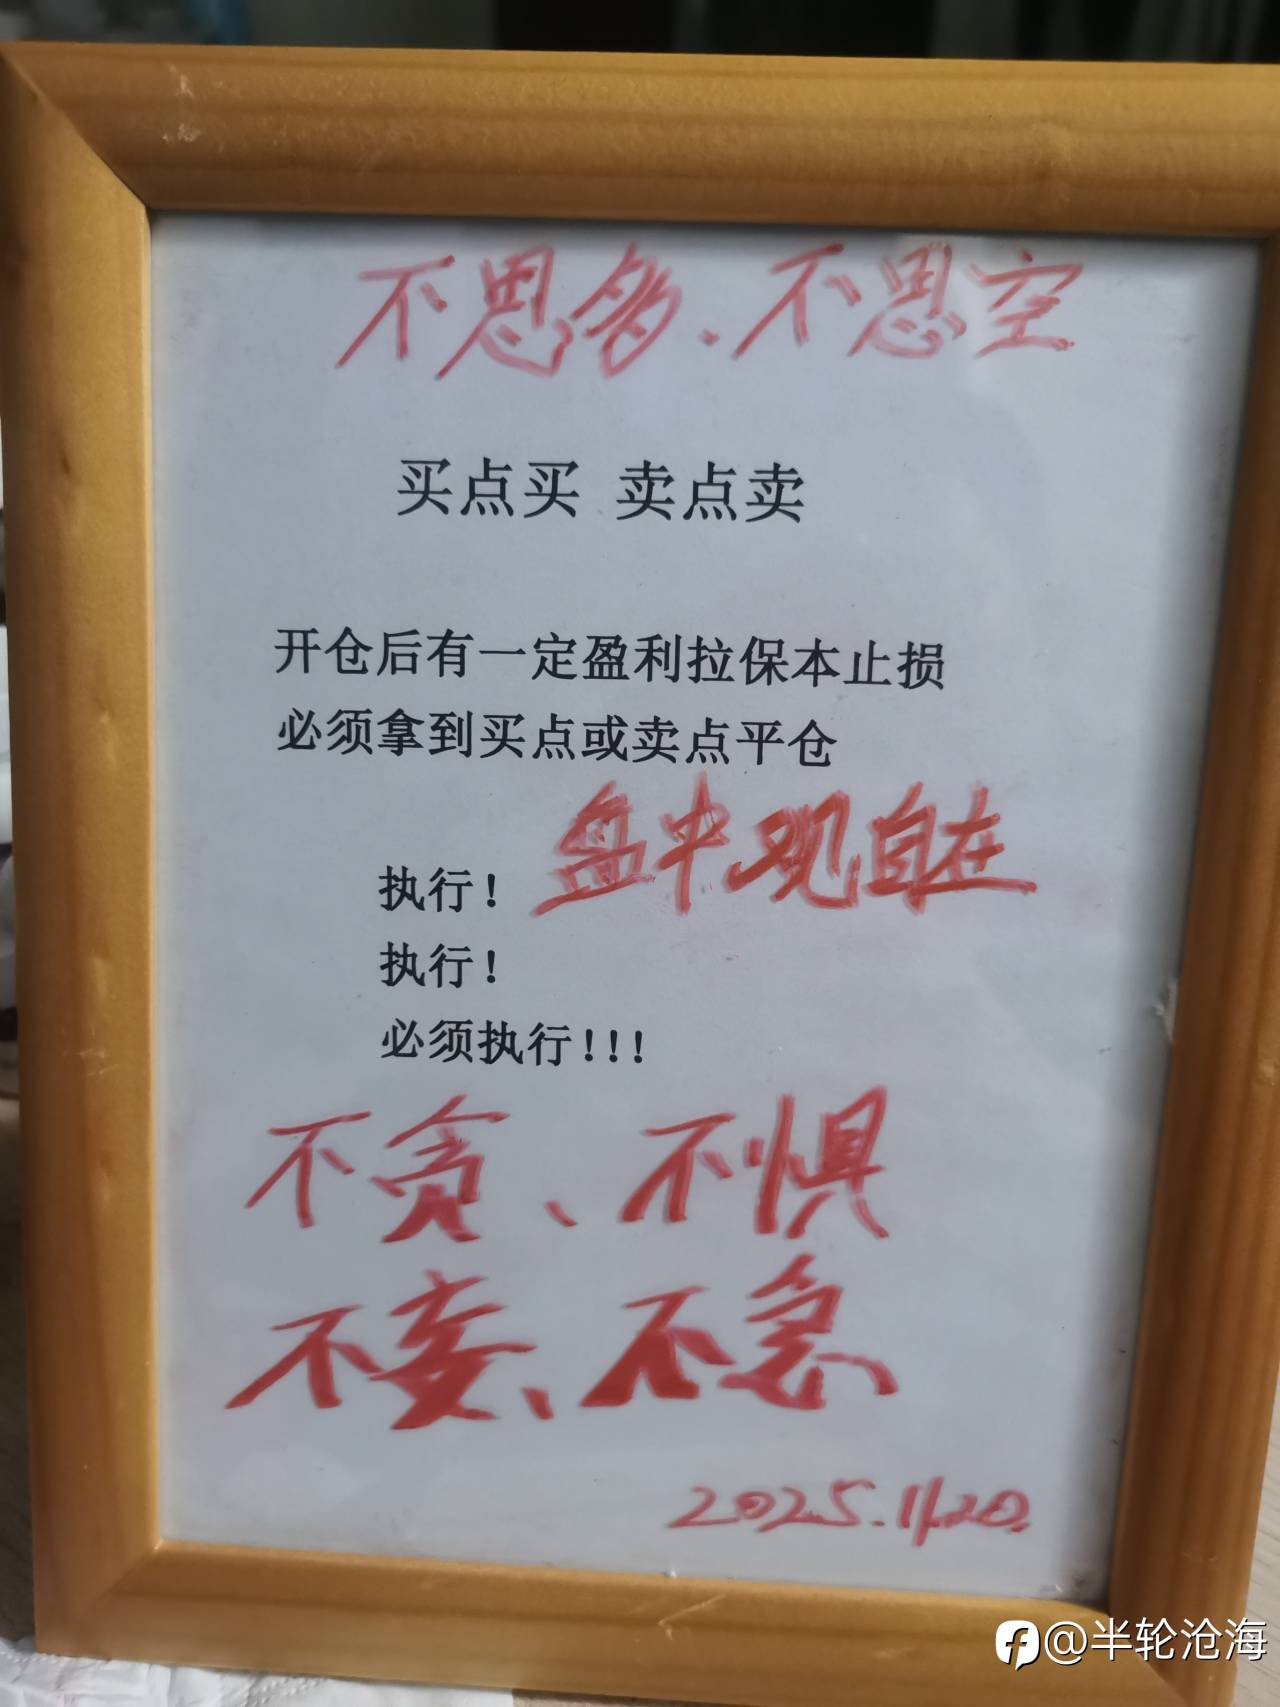 不思多、不思空
买点买 卖点卖
开仓后有一定盈利拉保本止损
必须拿到买点或卖点平仓
盘中观自在
执行！
执行！
必须执行！！！
不贪、不惧
不妄、不急
2025.11.20
@半轮沧海